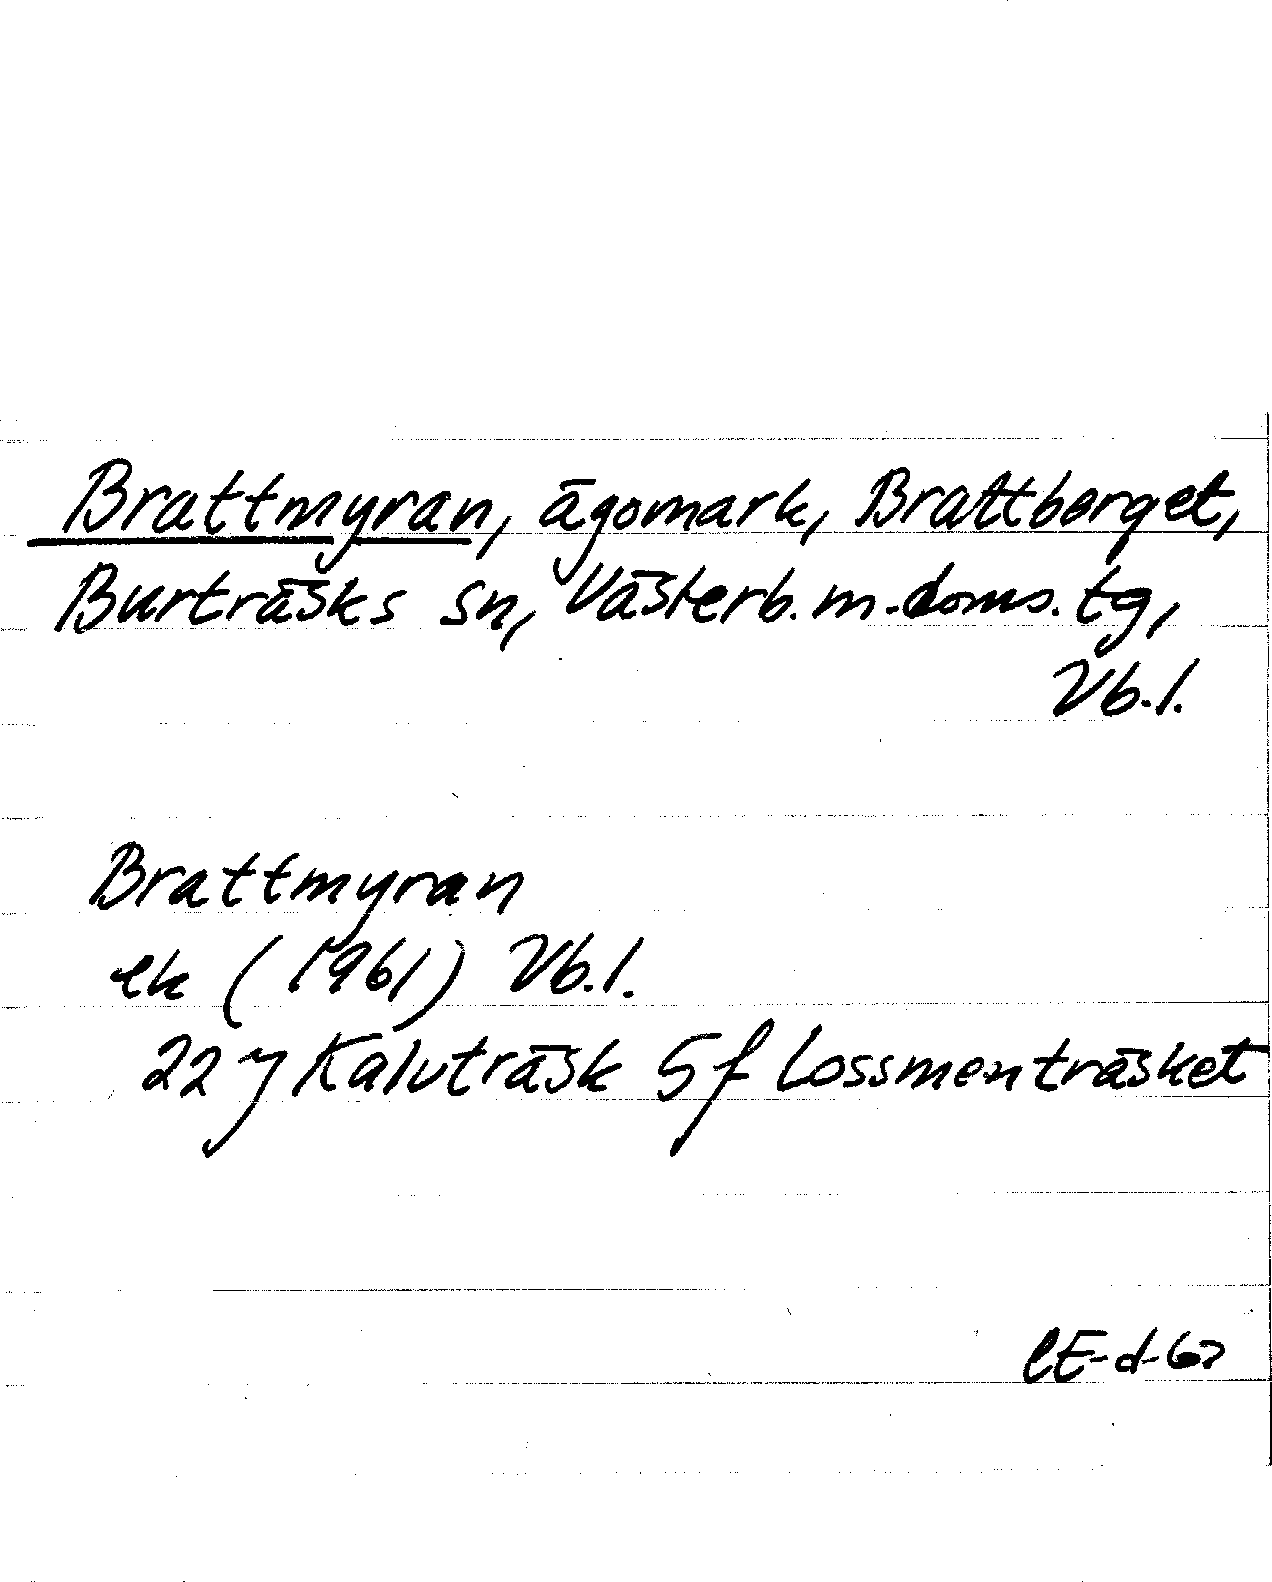 Brattmyran, ägomark, Brattberget,
Burträsks sn, Västerb. m. doms. tg,
Vb. l.
Brattmyran
ek (1961) Vb. l.
22 J Kalvträsk 5 f Lossmenträsket